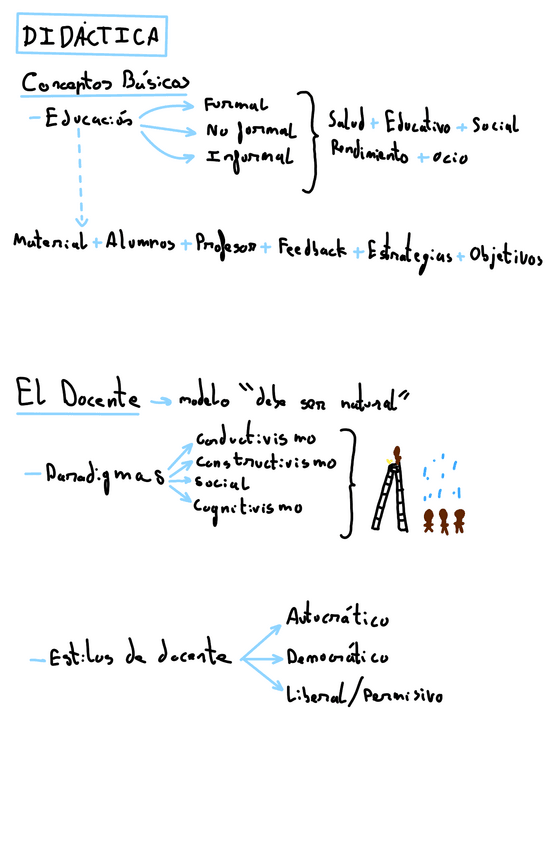 DIDÁCTICA
Conceptos Básicos
- Educación
Formal
No formal
Informal
Salud + Educativo + Social
Rendimiento + ocio
Material + Alumnos + Profesor + Feedback + Estrategias + Objetivos
El Docente → modelo "debe ser natural"
- Paradigmas
conductivismo
constructivismo
social
cognitivismo
- Estilos de docente
Autocrático
Democrático
Liberal/Permisivo